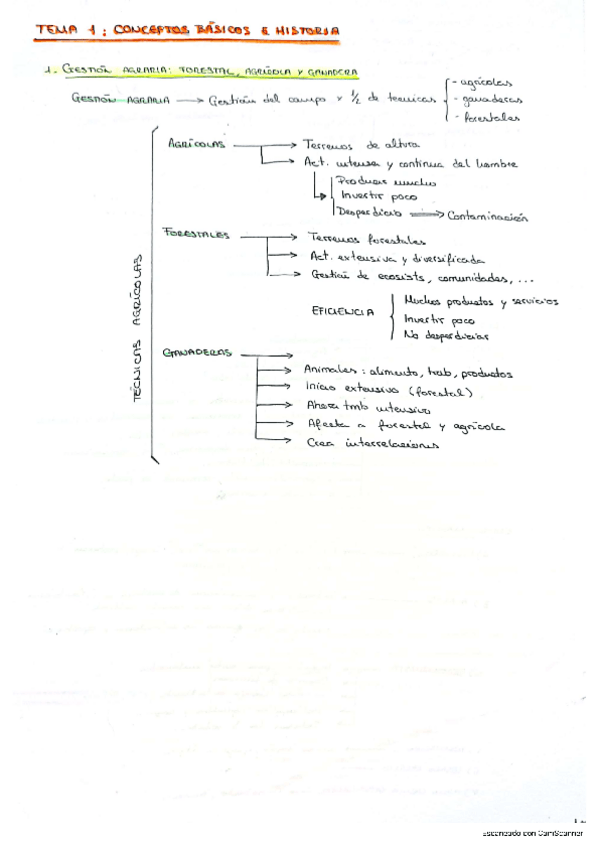 TEMA 1: CONCEPTOS BÁSICOS E HISTORIA
1. GESTIÓN AGRARIA: FORESTAL, AGRÍCOLA Y GANADERA
GESTIÓN AGRARIA → Gestión del campo x 1/2 de tecnicas
- agrícolas
- ganaderas
- forestales
TÉCNICAS AGRÍCOLAS
AGRÍCOLAS → Terrenos de altura
→ Act. intensa y continua del hombre
Producir mucho
Invertir poco
Desperdicio → Contaminación
FORESTALES → Terrenos forestales
→ Act. extensiva y diversificada
→ Gestión de ecosists, comunidades, ...
EFICIENCIA
Muchos productos y servicios
Invertir poco
No desperdiciar
GANADERAS →
→ Animales: alimento, trab, productos
→ Inicio extensivo (forestal)
→ Ahora tmb intensivo
→ Afecta a forestal y agrícola
→ Crea interrelaciones
Escaneado con CamScanner